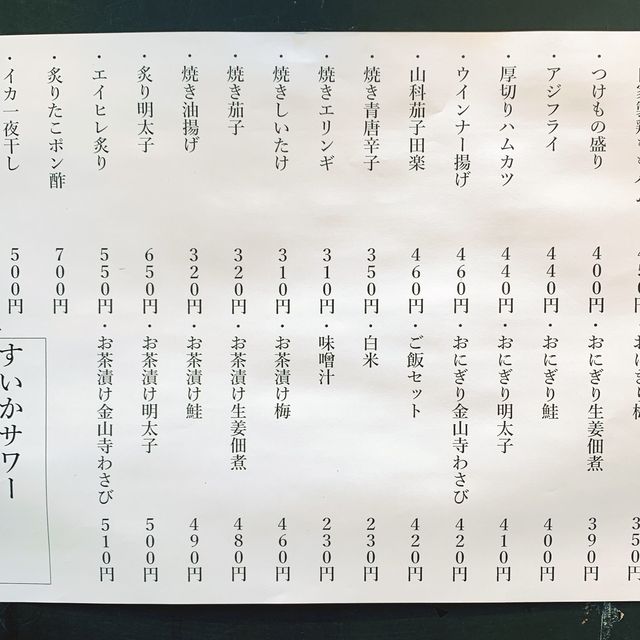 ・つけもの盛り 400円
・アジフライ 440円
・厚切りハムカツ 440円
・ウインナー揚げ 460円
・山科茄子田楽 460円
・焼き青唐辛子 350円
・焼きエリンギ 310円
・焼きしいたけ 310円
・焼き茄子 320円
・焼き油揚げ 320円
・炙り明太子 650円
・エイヒレ炙り 550円
・炙りたこポン酢 700円
・イカ一夜干し 500円
おにぎり梅 350円
・おにぎり生姜佃煮 390円
・おにぎり鮭 400円
・おにぎり明太子 410円
・おにぎり金山寺わさび 420円
・ご飯セット 420円
・白米 230円
・味噌汁 230円
・お茶漬け梅 460円
・お茶漬け生姜佃煮 480円
・お茶漬け鮭 490円
・お茶漬け明太子 500円
・お茶漬け金山寺わさび 510円
すいかサワー